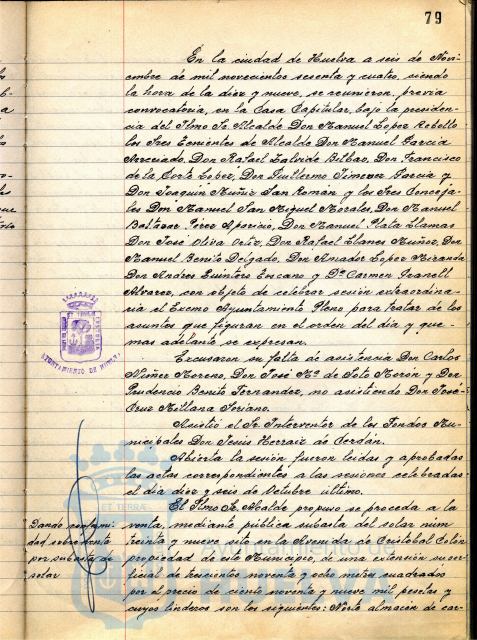 79
En la ciudad de Huelva a seis de Novi-
embre de mil novecientos sesenta y cuatro, siendo
la hora de la diez y nueve, se reunieron, previa
convocatoria, en la Casa Capitular, bajo la presiden-
cia del Ilmo Sr. Alcalde Don Manuel Lopez Rebollo
los Sres Tenientes de Alcalde Don Manuel Garcia
Don Rafael Zalvide Bilbao, Don Francisco
de la Corte Lopez, Don Guillermo Jimenez Garcia y
Don Joaquin Muñiz San Román y los Sres Conceja-
les Don Manuel San Miguel Morales, Don Manuel
Baltasar Perez Aparicio, Don Manuel Plata Llamas
Don José Oliva Ortiz, Don Rafael Llanes Muñoz, Don
Manuel Benito Delgado, Don Amador Lopez Miranda
Don Andres Quintero Toscano y Dª Carmen
Alvarez, con objeto de celebrar sesión extraordina-
ria el Excmo Ayuntamiento Pleno para tratar de los
asuntos que figuran en el orden del dia y que
mas adelante se expresan.
Excusaron su falta de asistencia Don Carlos
Nuñez Moreno, Don José Mª de Soto Morón y Don
Prudencio Benito Fernandez, no asistiendo Don José
Cruz Millana Soriano.
Asistió el Sr. Interventor de los Fondos Mu-
nicipales Don Jesús Herraiz de Cerdán.
Abierta la sesión fueron leidas y aprobadas
las actas correspondientes a las sesiones celebradas
el dia diez y seis de Octubre último.
El Ilmo Sr. Alcalde propuso se proceda a la
venta, mediante pública subasta del solar num
treinta y nueve sito en la Avenida de Cristobal Colón
propiedad de este Municipio, de una extensión super-
ficial de trescientos noventa y ocho metros cuadrados
por el precio de ciento noventa y nueve mil pesetas y
cuyos linderos son los siguientes: Norte almacén de car-
Dando
sobre venta
por subasta de
solar
AYUNTAMIENTO DE HUELVA
ET TERRA
Ayuntamiento de